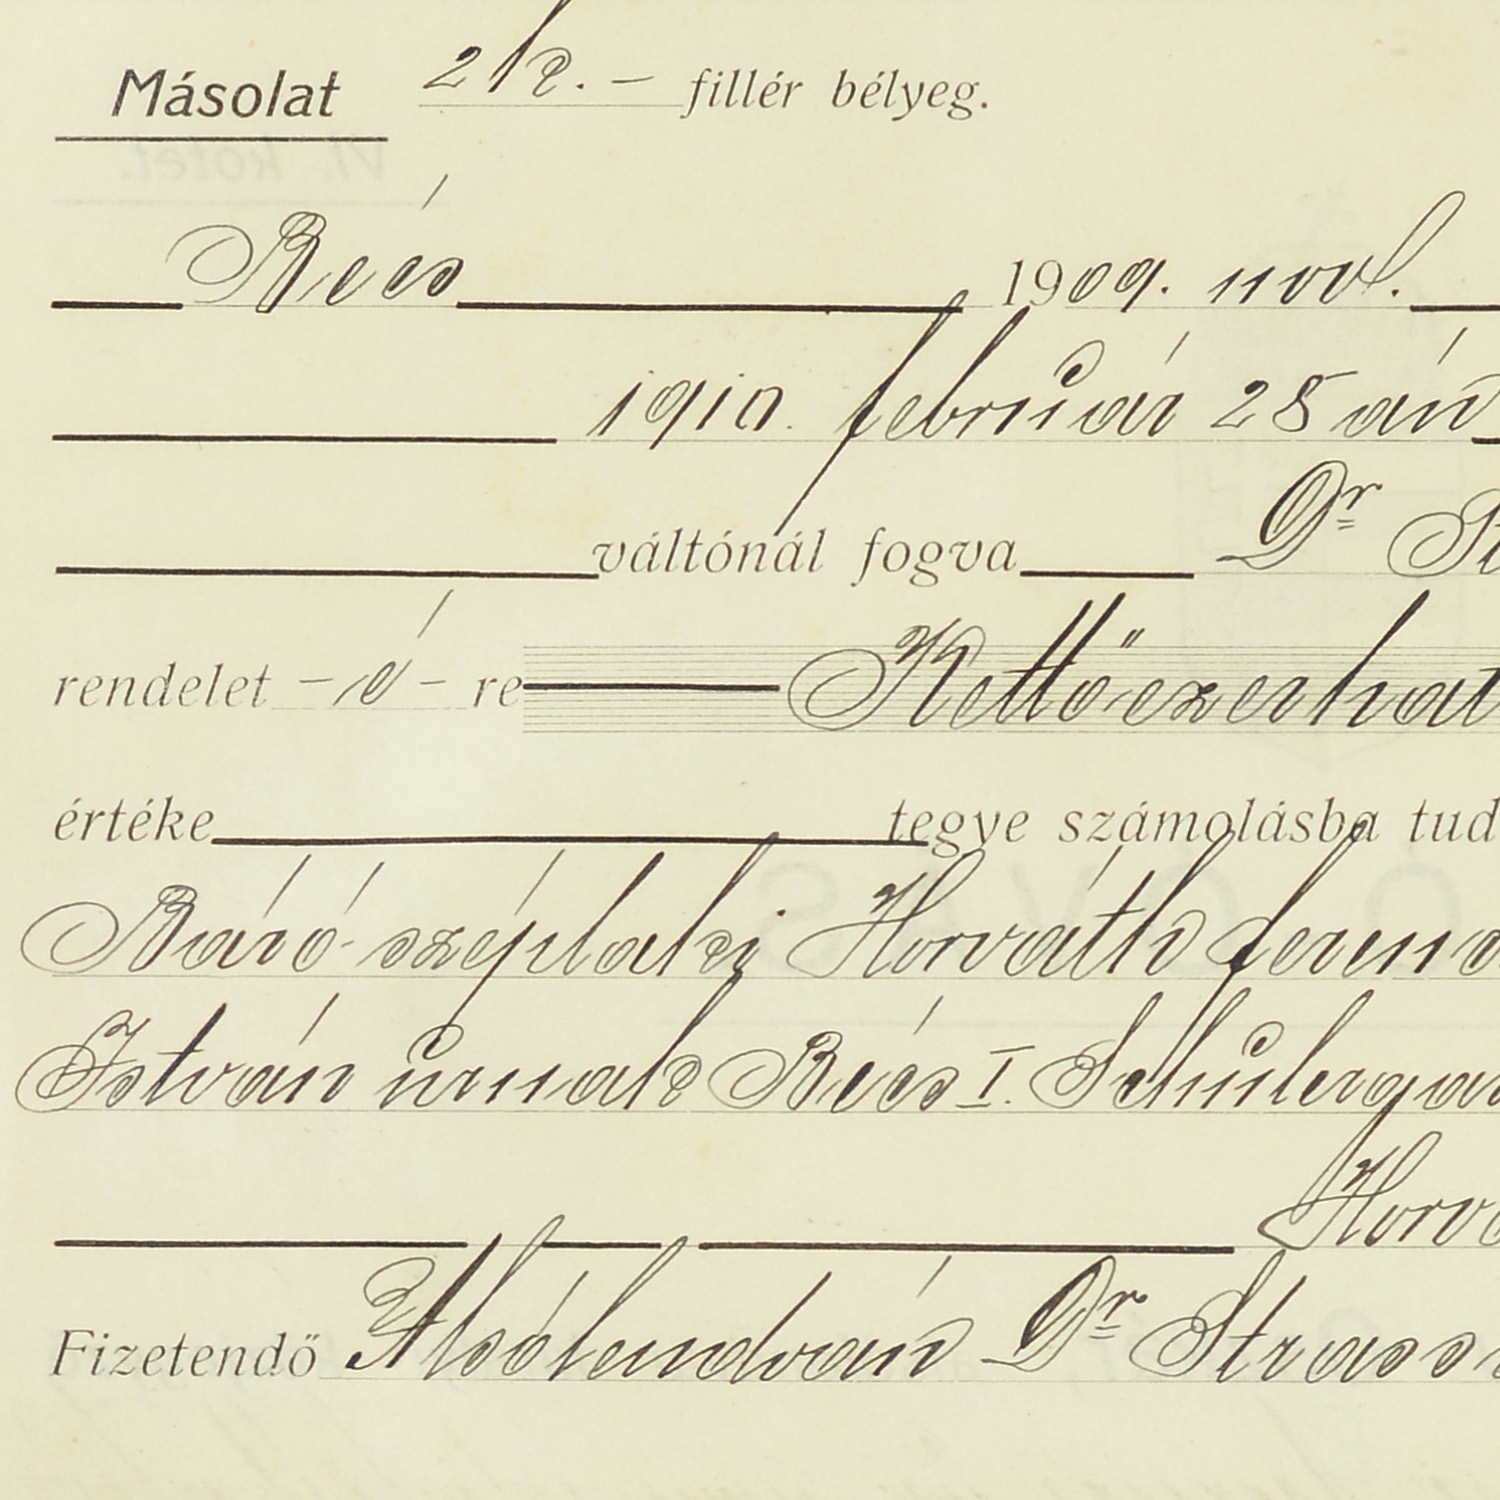 Másolat 2 k. – fillér bélyeg.
Bécs 1909. nov.
1910. február 28 án
váltónál fogva Dr St
rendelet – é – re Kettőezerhat
értéke tegye számolásba tud
Báró széplaki Horváth ferenc
István úrnak Bécs I. Schulerga
Horv
Fizetendő Alsólendván Dr Strass